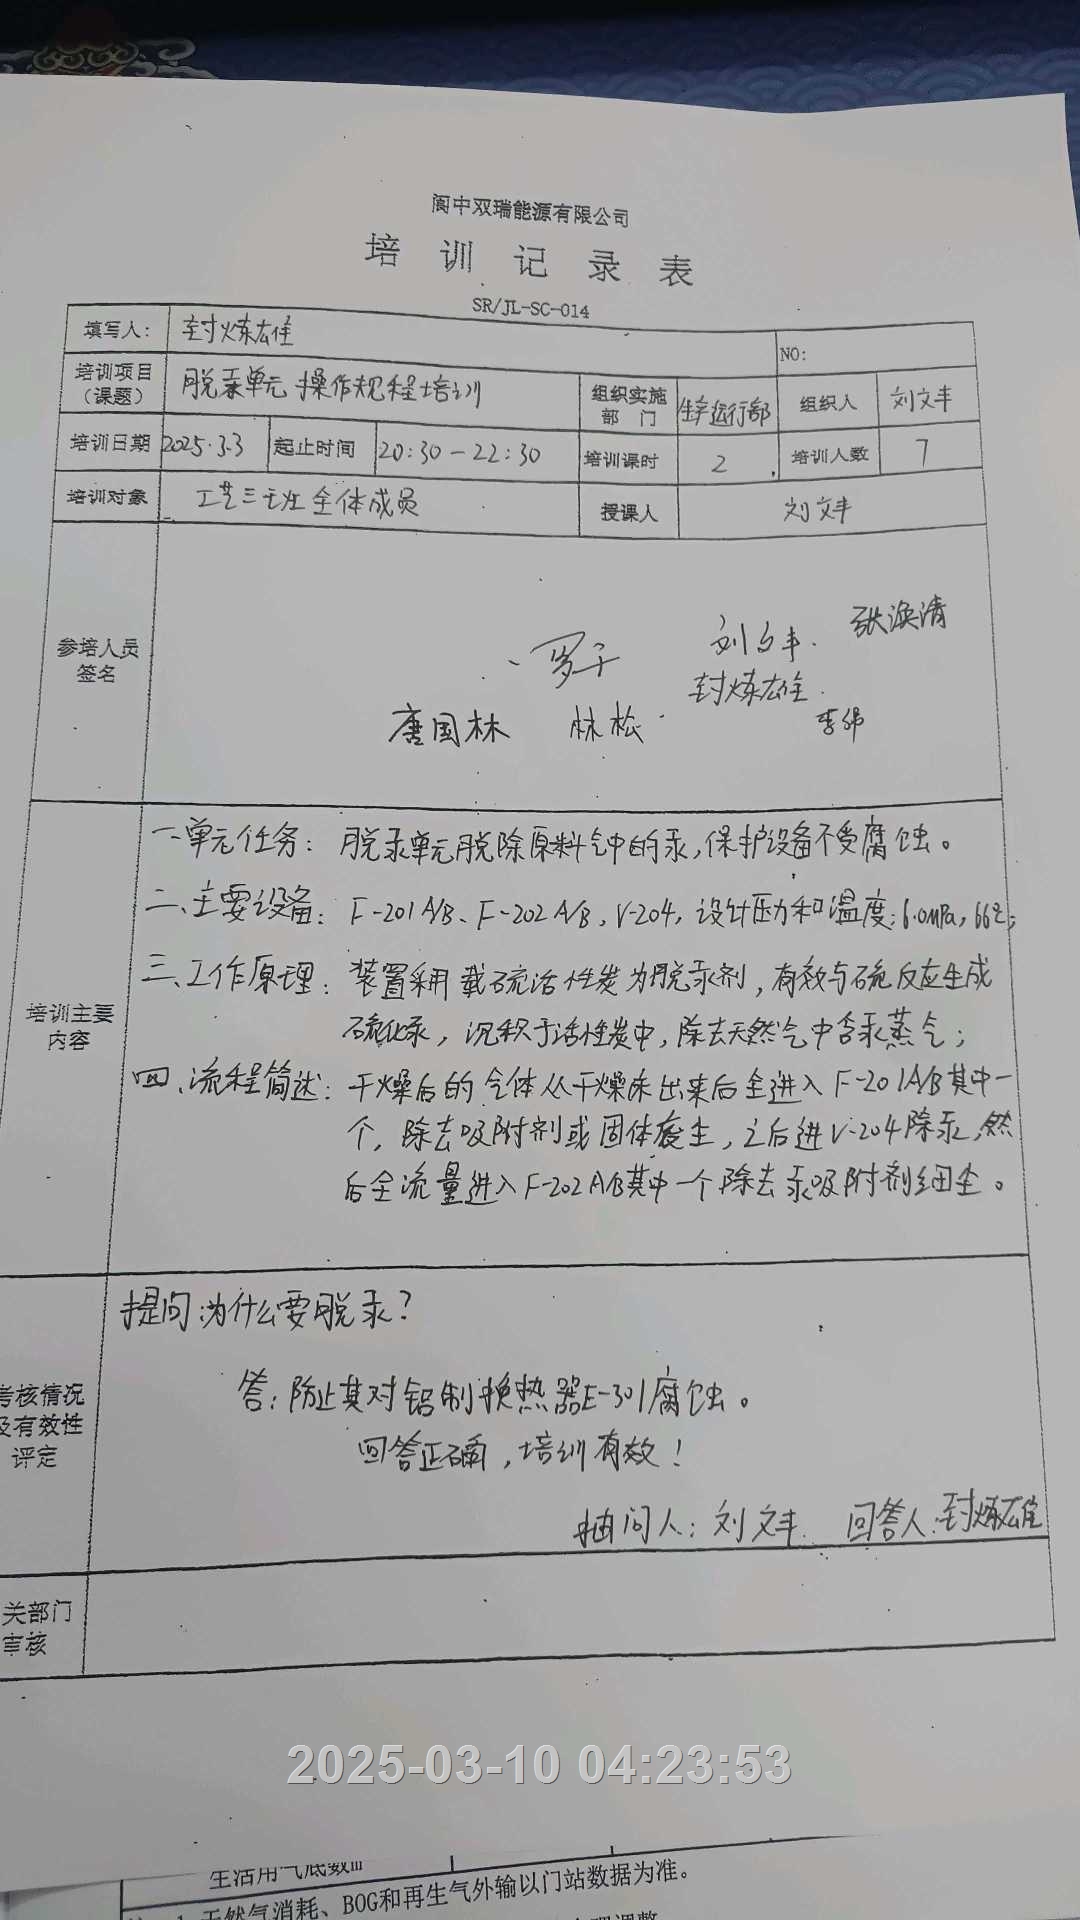 阆中双瑞能源有限公司
培训记录表
SR/JL-SC-014
填写人： 封炼雄 NO:
培训项目（课题） 脱汞单元操作规程培训 组织实施部门 生产运行部 组织人 刘文丰
培训日期 2025.3.3 起止时间 20:30-22:30 培训课时 2 培训人数 7
培训对象 工艺三班全体成员 授课人 刘文丰
参培人员签名
刘文丰 张涣清
封炼雄
唐国林 林松
培训主要内容
一、单元任务：脱汞单元脱除原料气中的汞，保护设备不受腐蚀。
二、主要设备：F-201A/B、F-202A/B，V-204，设计压力和温度：6.0MPa，66℃；
三、工作原理：装置采用载硫活性炭为脱汞剂，有效与硫反应生成
硫化汞，沉积于活性炭中，除去天然气中含汞蒸气；
四、流程简述：干燥后的气体从干燥床出来后全进入F-201A/B其中一
个，除去吸附剂或固体废尘，之后进V-204除汞，然
后全流量进入F-202A/B其中一个除去汞吸附剂细尘。
考核情况及有效性评定
提问：为什么要脱汞？
答：防止其对铝制换热器E-301腐蚀。
回答正确，培训有效！
抽问人：刘文丰 回答人：封炼雄
关部门审核
2025-03-10 04:23:53
生活用气底数
天然气消耗、BOG和再生气外输以门站数据为准。